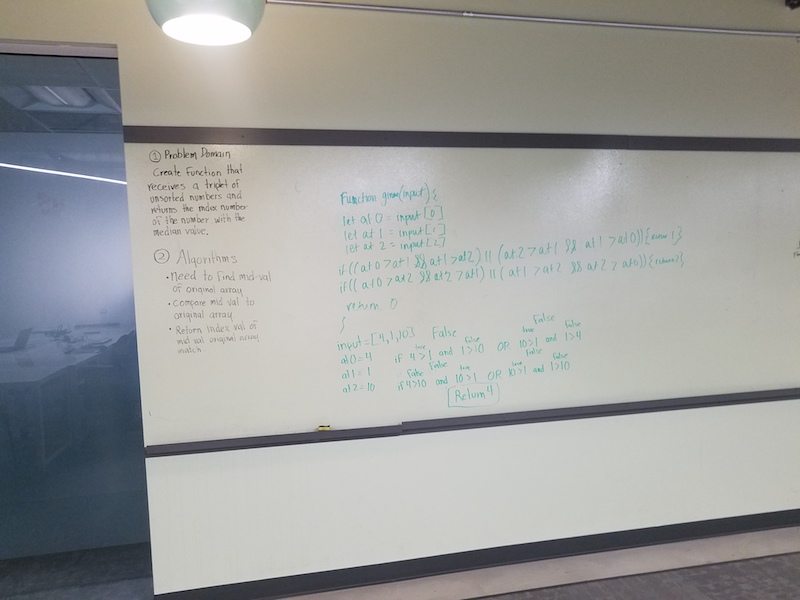 ① Problem Domain
Create Function that
receives a triplet of
unsorted numbers and
returns the index number
of the number with the
median value.
② Algorithms
• Need to find mid-val
of original array
• Compare mid val to
original array
• Return index val of
mid val original array
match
Function gimme(input) {
let at 0 = input [0]
let at 1 = input [1]
let at 2 = input [2]
if ((at 0 > at 1 && at 1 > at2) || (at 2 > at 1 && at 1 > at 0)) {return 1}
if (( at 0 > at 2 && at 2 > at1) || ( at 1 > at 2 && at 2 > at0)) {return 2}
return 0
}
input = [4,1,10] False False
true false true false
at 0 = 4 if 4 > 1 and 1 > 10 OR 10 > 1 and 1 > 4
False False
at 1 = 1 false true true false
at 2 = 10 if 4 > 10 and 10 > 1 OR 10 > 1 and 1 > 10
Return 4